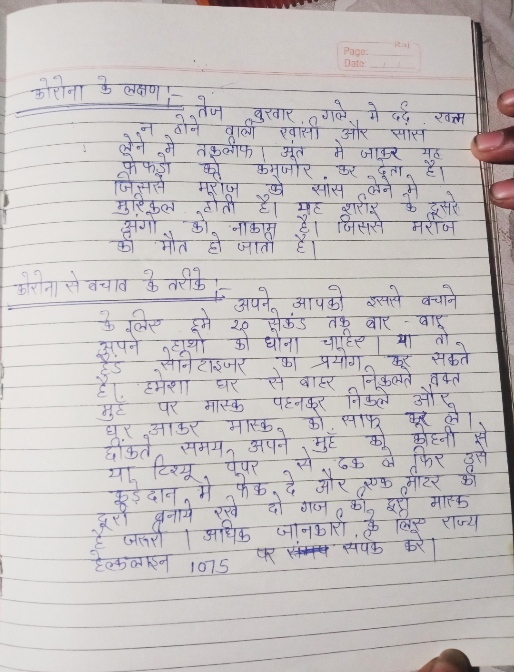 Page:
Date:
कोरोना के लक्षण!-
तेज बुखार, गले मे दर्द, खत्म
न होने वाली खांसी और सांस
लेने मे तकलीफ। अंत मे जाकर यह
फेफड़ो को कमजोर कर देता है।
जिससे मरीज को सांस लेने मे
मुश्किल होती है। यह शरीर के दूसरे
अंगो को नाकाम है। जिससे मरीज
की मौत हो जाती है।
कोरोना से बचाव के तरीके!-
अपने आपको इससे बचाने
के लिए हमे 20 सेकंड तक बार-बार
अपने हाथो को धोना चाहिए। या तो
हैंड सेनिटाइजर का प्रयोग कर सकते
है। हमेशा घर से बाहर निकलते वक्त
मुहँ पर मास्क पहनकर निकले और
घर आकर मास्क को साफ कर ले।
छींकते समय अपने मुहँ को कोहनी से
या टिश्यू पेपर से ढक ले फिर उसे
कूड़ेदान मे फेक दे और एक मीटर की
दूरी बनाये रखे दो गज की दूरी मास्क
है जरुरी। अधिक जानकारी के लिए राज्य
हेल्कलाइन 1075 पर सपंक करे।